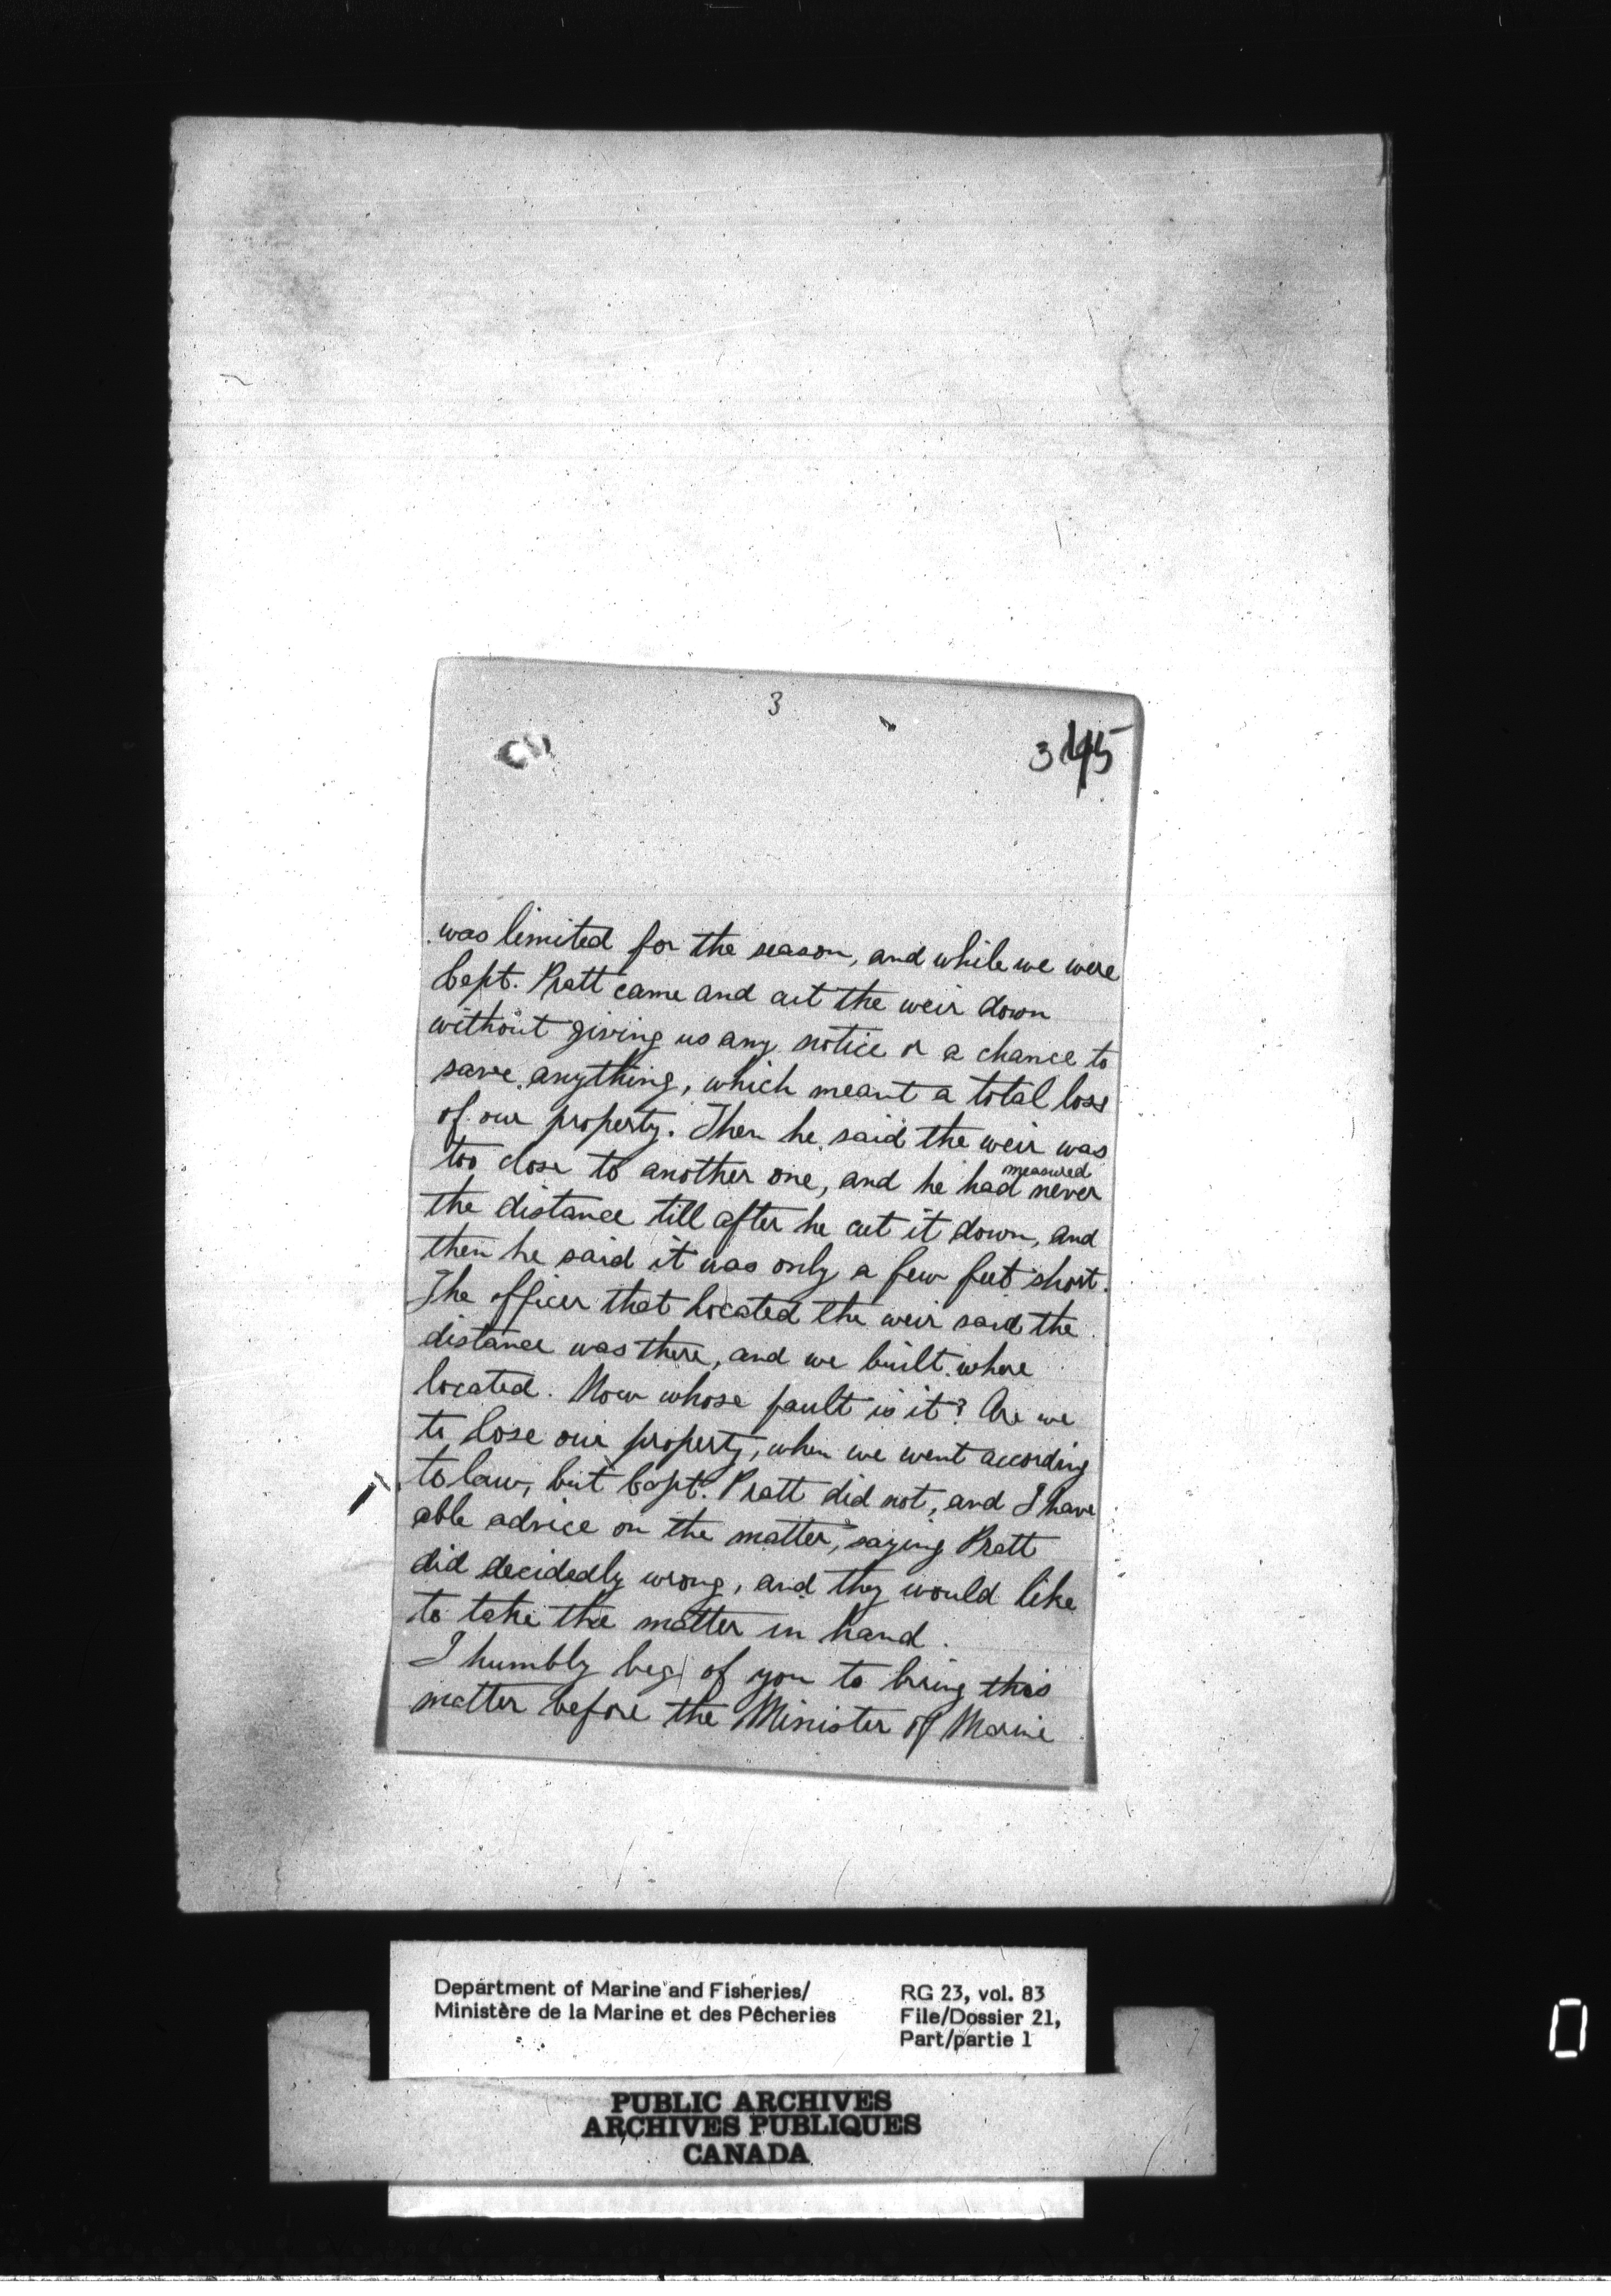 3
3145
was limited for the season, and while we were
Capt. Pratt came and cut the weir down
without giving us any notice or a chance to
save anything, which meant a total loss
of our property. Then he said the weir was
too close to another one, and he had measured never
the distance till after he cut it down, and
then he said it was only a few feet short.
The officer that located the weir said the
distance was there, and we built where
located. Now whose fault is it? Are we
to lose our property, when we went according
to law, but Capt. Pratt did not, and I have
able advice on the matter, saying Pratt
did decidedly wrong, and they would like
to take the matter in hand.
I humbly beg of you to bring this
matter before the Minister of Marine
Department of Marine and Fisheries/
Ministère de la Marine et des Pêcheries
RG 23, vol. 83
File/Dossier 21,
Part/partie 1
PUBLIC ARCHIVES
ARCHIVES PUBLIQUES
CANADA